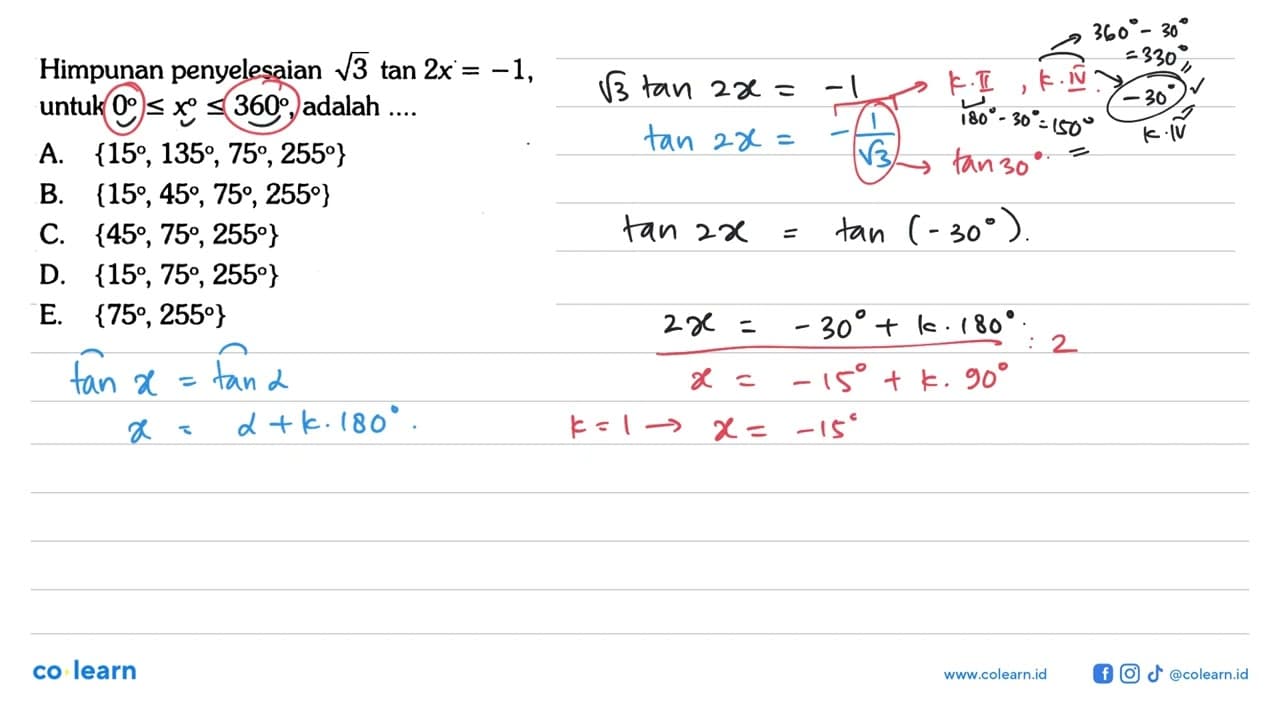 Himpunan penyelesaian √3 tan 2x = −1,
untuk 0° ≤ x° ≤ 360°, adalah ....
A. {15°, 135°, 75°, 255°}
B. {15°, 45°, 75°, 255°}
C. {45°, 75°, 255°}
D. {15°, 75°, 255°}
E. {75°, 255°}
tan x = tan α
x = α + k.180°.
√3 tan 2x = −1
tan 2x = −1/√3
k.II, k.IV.
180° − 30° = 150°
tan 30°.
360° − 30°
= 330°
−30° ✓
k.IV
tan 2x = tan (−30°).
2x = −30° + k.180° : 2
x = −15° + k. 90°
k = 1 → x = −15°
co learn
www.colearn.id
@colearn.id